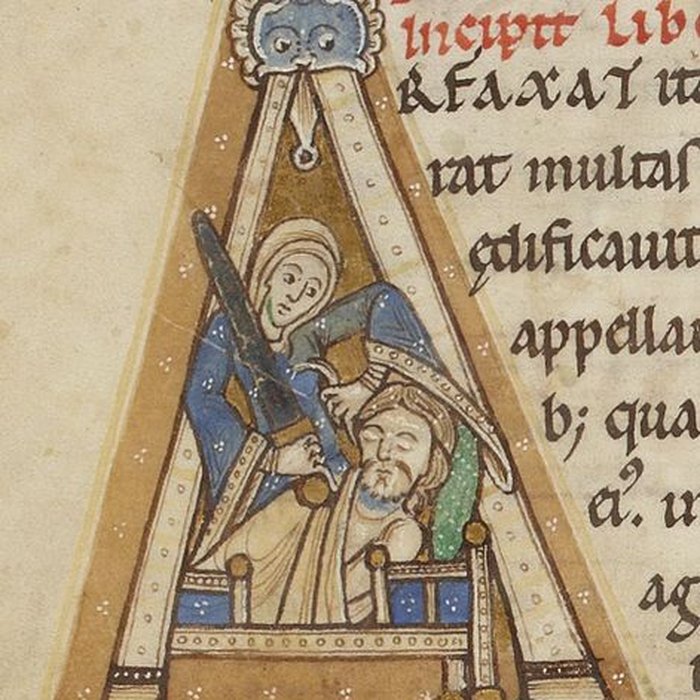 Incipit Lib
RFAXAT ita
rat multas
ędificauit
appella
b; qua
ei⁹. u
ag